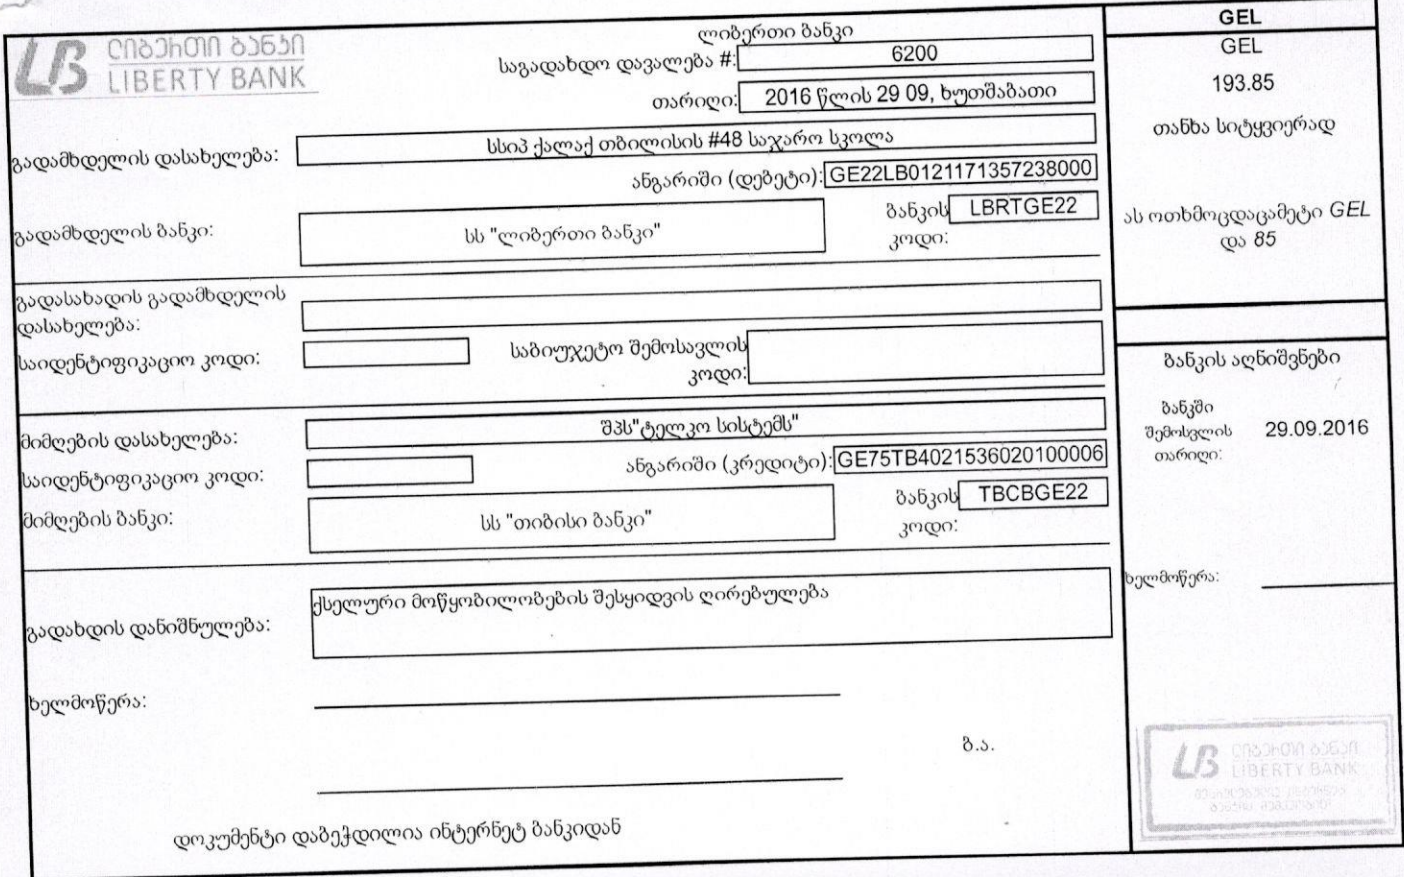 ᲚᲘᲑᲔᲠᲗᲘ ᲑᲐᲜᲙᲘ
LB LIBERTY BANK
ლიბერთი ბანკი
საგადახდო დავალება #: 6200
თარიღი: 2016 წლის 29 09, ხუთშაბათი
გადამხდელის დასახელება: სსიპ ქალაქ თბილისის #48 საჯარო სკოლა
ანგარიში (დებეტი): GE22LB0121171357238000
გადამხდელის ბანკი: სს "ლიბერთი ბანკი" ბანკის კოდი: LBRTGE22
გადასახადის გადამხდელის
დასახელება:
საიდენტიფიკაციო კოდი: საბიუჯეტო შემოსავლის
კოდი:
მიმღების დასახელება: შპს"ტელკო სისტემს"
საიდენტიფიკაციო კოდი: ანგარიში (კრედიტი): GE75TB4021536020100006
მიმღების ბანკი: სს "თიბისი ბანკი" ბანკის კოდი: TBCBGE22
გადახდის დანიშნულება: ქსელური მოწყობილობების შესყიდვის ღირებულება
ხელმოწერა:
ბ.ა.
დოკუმენტი დაბეჭდილია ინტერნეტ ბანკიდან
GEL
GEL
193.85
თანხა სიტყვიერად
ას ოთხმოცდაცამეტი GEL
და 85
ბანკის აღნიშვნები
ბანკში
შემოსვლის 29.09.2016
თარიღი:
ხელმოწერა:
ᲚᲘᲑᲔᲠᲗᲘ ᲑᲐᲜᲙᲘ
LB LIBERTY BANK